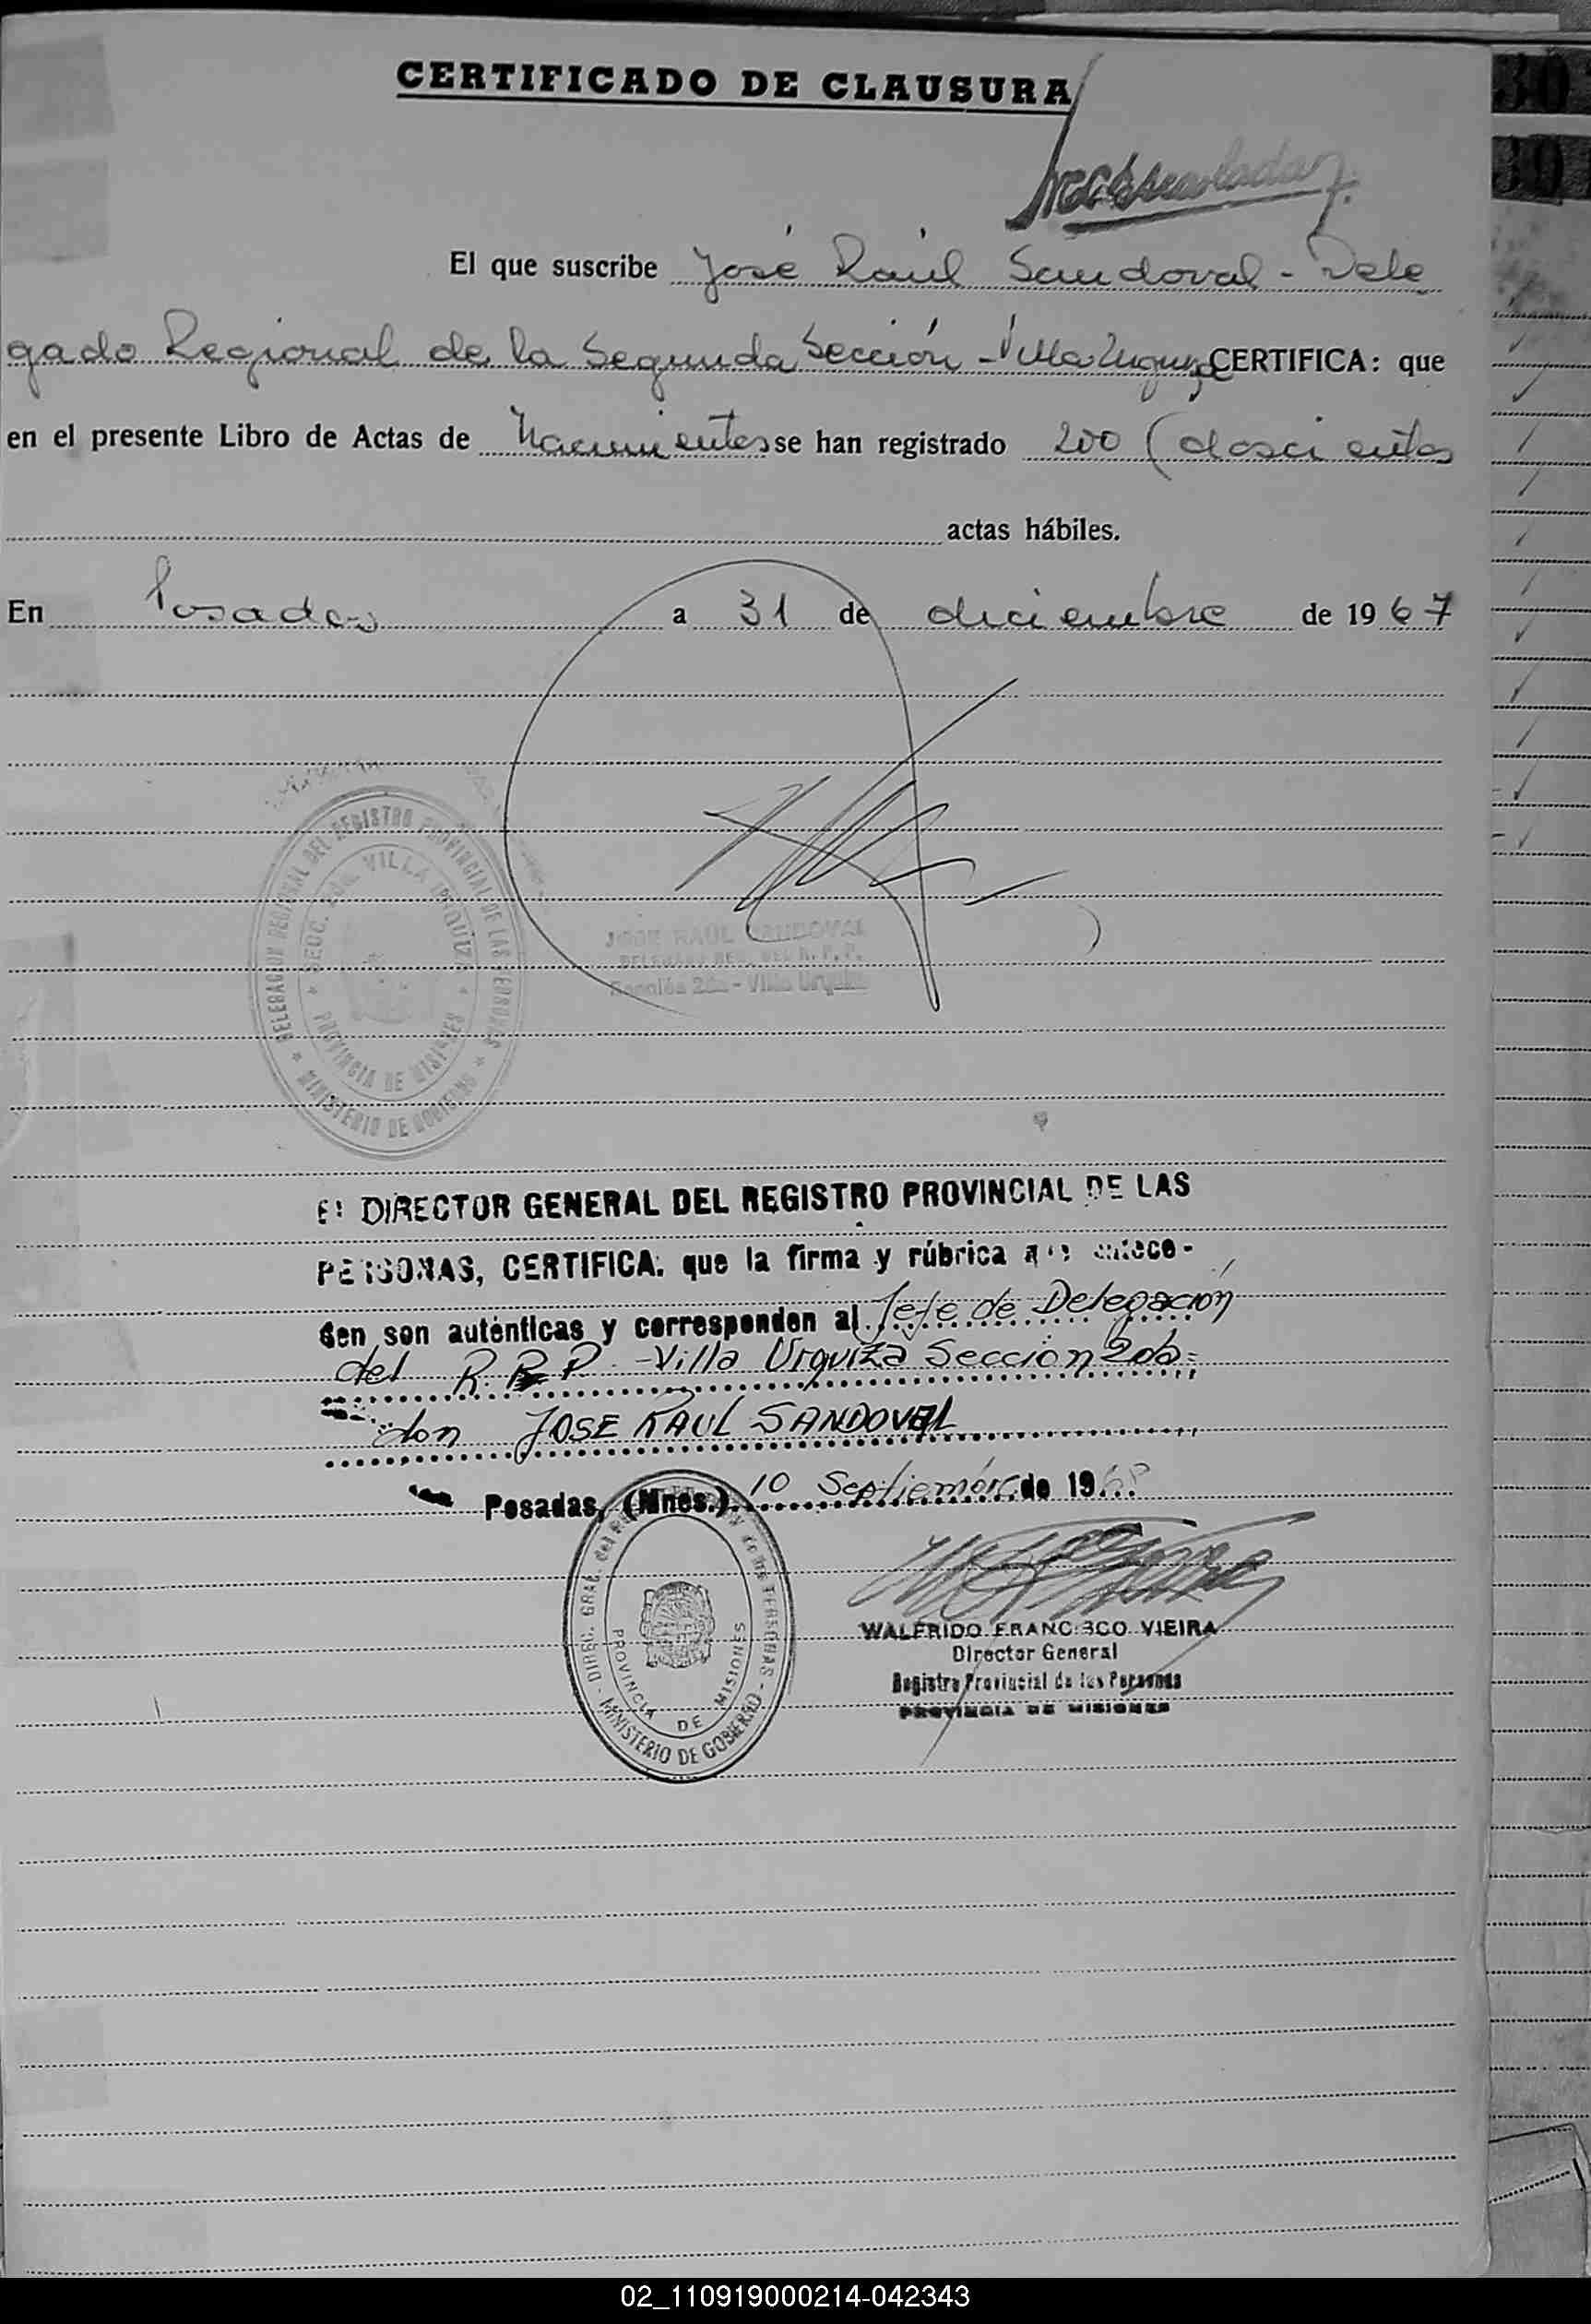 CERTIFICADO DE CLAUSURA
El que suscribe José Raúl Sandoval - Dele
gado Regional de la Segunda Sección - Villa Urquiza CERTIFICA: que
en el presente Libro de Actas de Nacimientos se han registrado 200 (doscientos
actas hábiles.
En Posadas a 31 de diciembre de 1967
DELEGACION REGIONAL DEL REGISTRO PROVINCIAL DE LAS PERSONAS
SECC. 2da. VILLA URQUIZA
PROVINCIA DE MISIONES
MINISTERIO DE GOBIERNO
JOSE RAUL SANDOVAL
DELEGADO REG. DEL R. P. P.
Sección 2da - Villa Urquiza
El DIRECTOR GENERAL DEL REGISTRO PROVINCIAL DE LAS
PERSONAS, CERTIFICA: que la firma y rúbrica que antece-
den son auténticas y corresponden al Jefe de Delegación
del R. P. P. - Villa Urquiza Sección 2da.
don JOSE RAUL SANDOVAL
Posadas, (Mnes.) 10 Septiembre de 1968
DIREC. GRAL. del
de las PERSONAS
PROVINCIA DE MISIONES
MINISTERIO DE GOBIERNO
WALFRIDO FRANCISCO VIEIRA
Director General
Registro Provincial de las Personas
PROVINCIA DE MISIONES
02_110919000214-042343